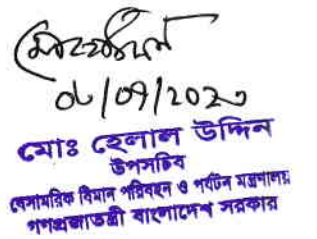 ০৮/০৭/২০২০
মোঃ হেলাল উদ্দিন
উপসচিব
বেসামরিক বিমান পরিবহন ও পর্যটন মন্ত্রণালয়
গণপ্রজাতন্ত্রী বাংলাদেশ সরকার